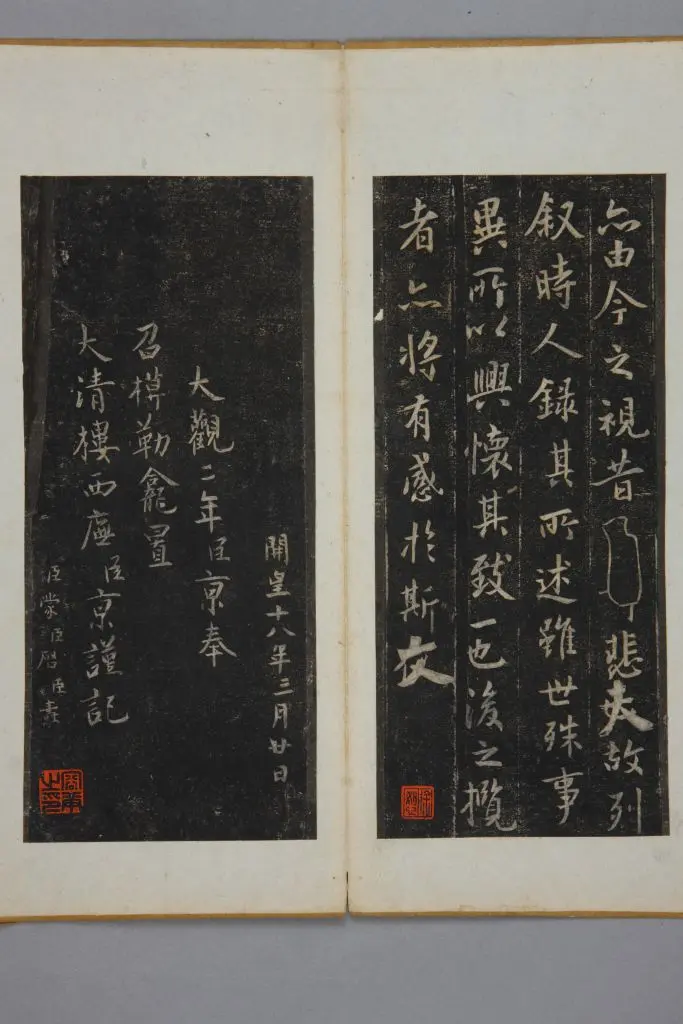 亦由今之視昔悲夫故列
叙時人錄其所述雖世殊事
異所以興懷其致一也後之攬
者亦將有感於斯文
開皇十八年三月廿日
大觀二年臣京奉
召模勒龕置
大清樓西廡臣京謹記